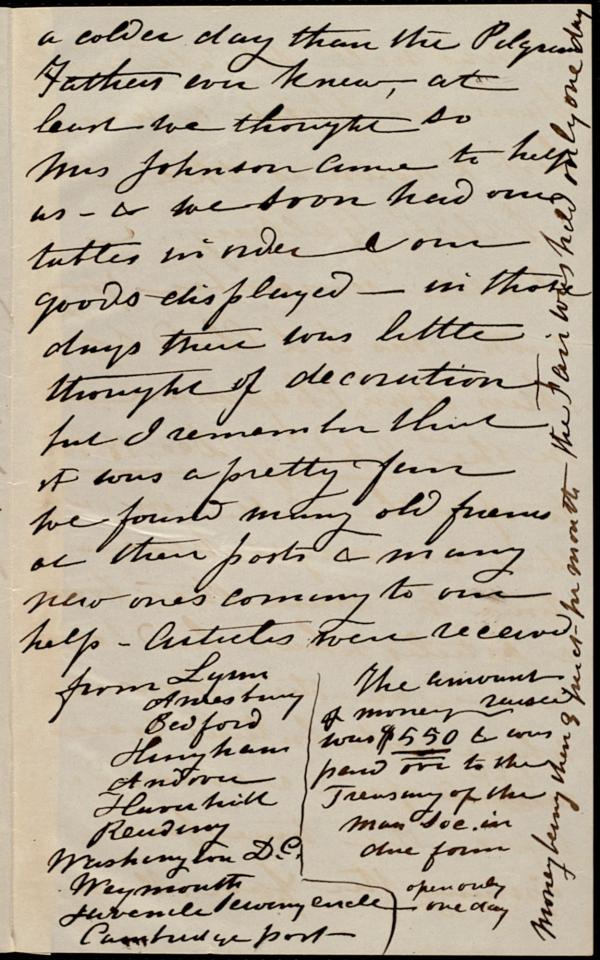 a colder day than the Pilgrim
Fathers ever knew, at
least we thought so
Mrs Johnson came to help
us - & we soon had our
tables in order & our
goods displayed — in those
days there was little
thought of decoration
but I remember that
it was a pretty fair
We found many old friends
at their posts & many
new ones coming to our
help - Articles were received
from Lynn
Amesbury
Bedford
Hingham
Andover
Haverhill
Reading
Washington D.C.
Weymouth
Juvenile Sewing circle
Cambridge port
The amount
of money raised
was $550 & was
paid over to the
Treasury of the
Mass Soc. in
due form
open only
one day
Money being then 3 pr ct. pr month the Fair was held only one day